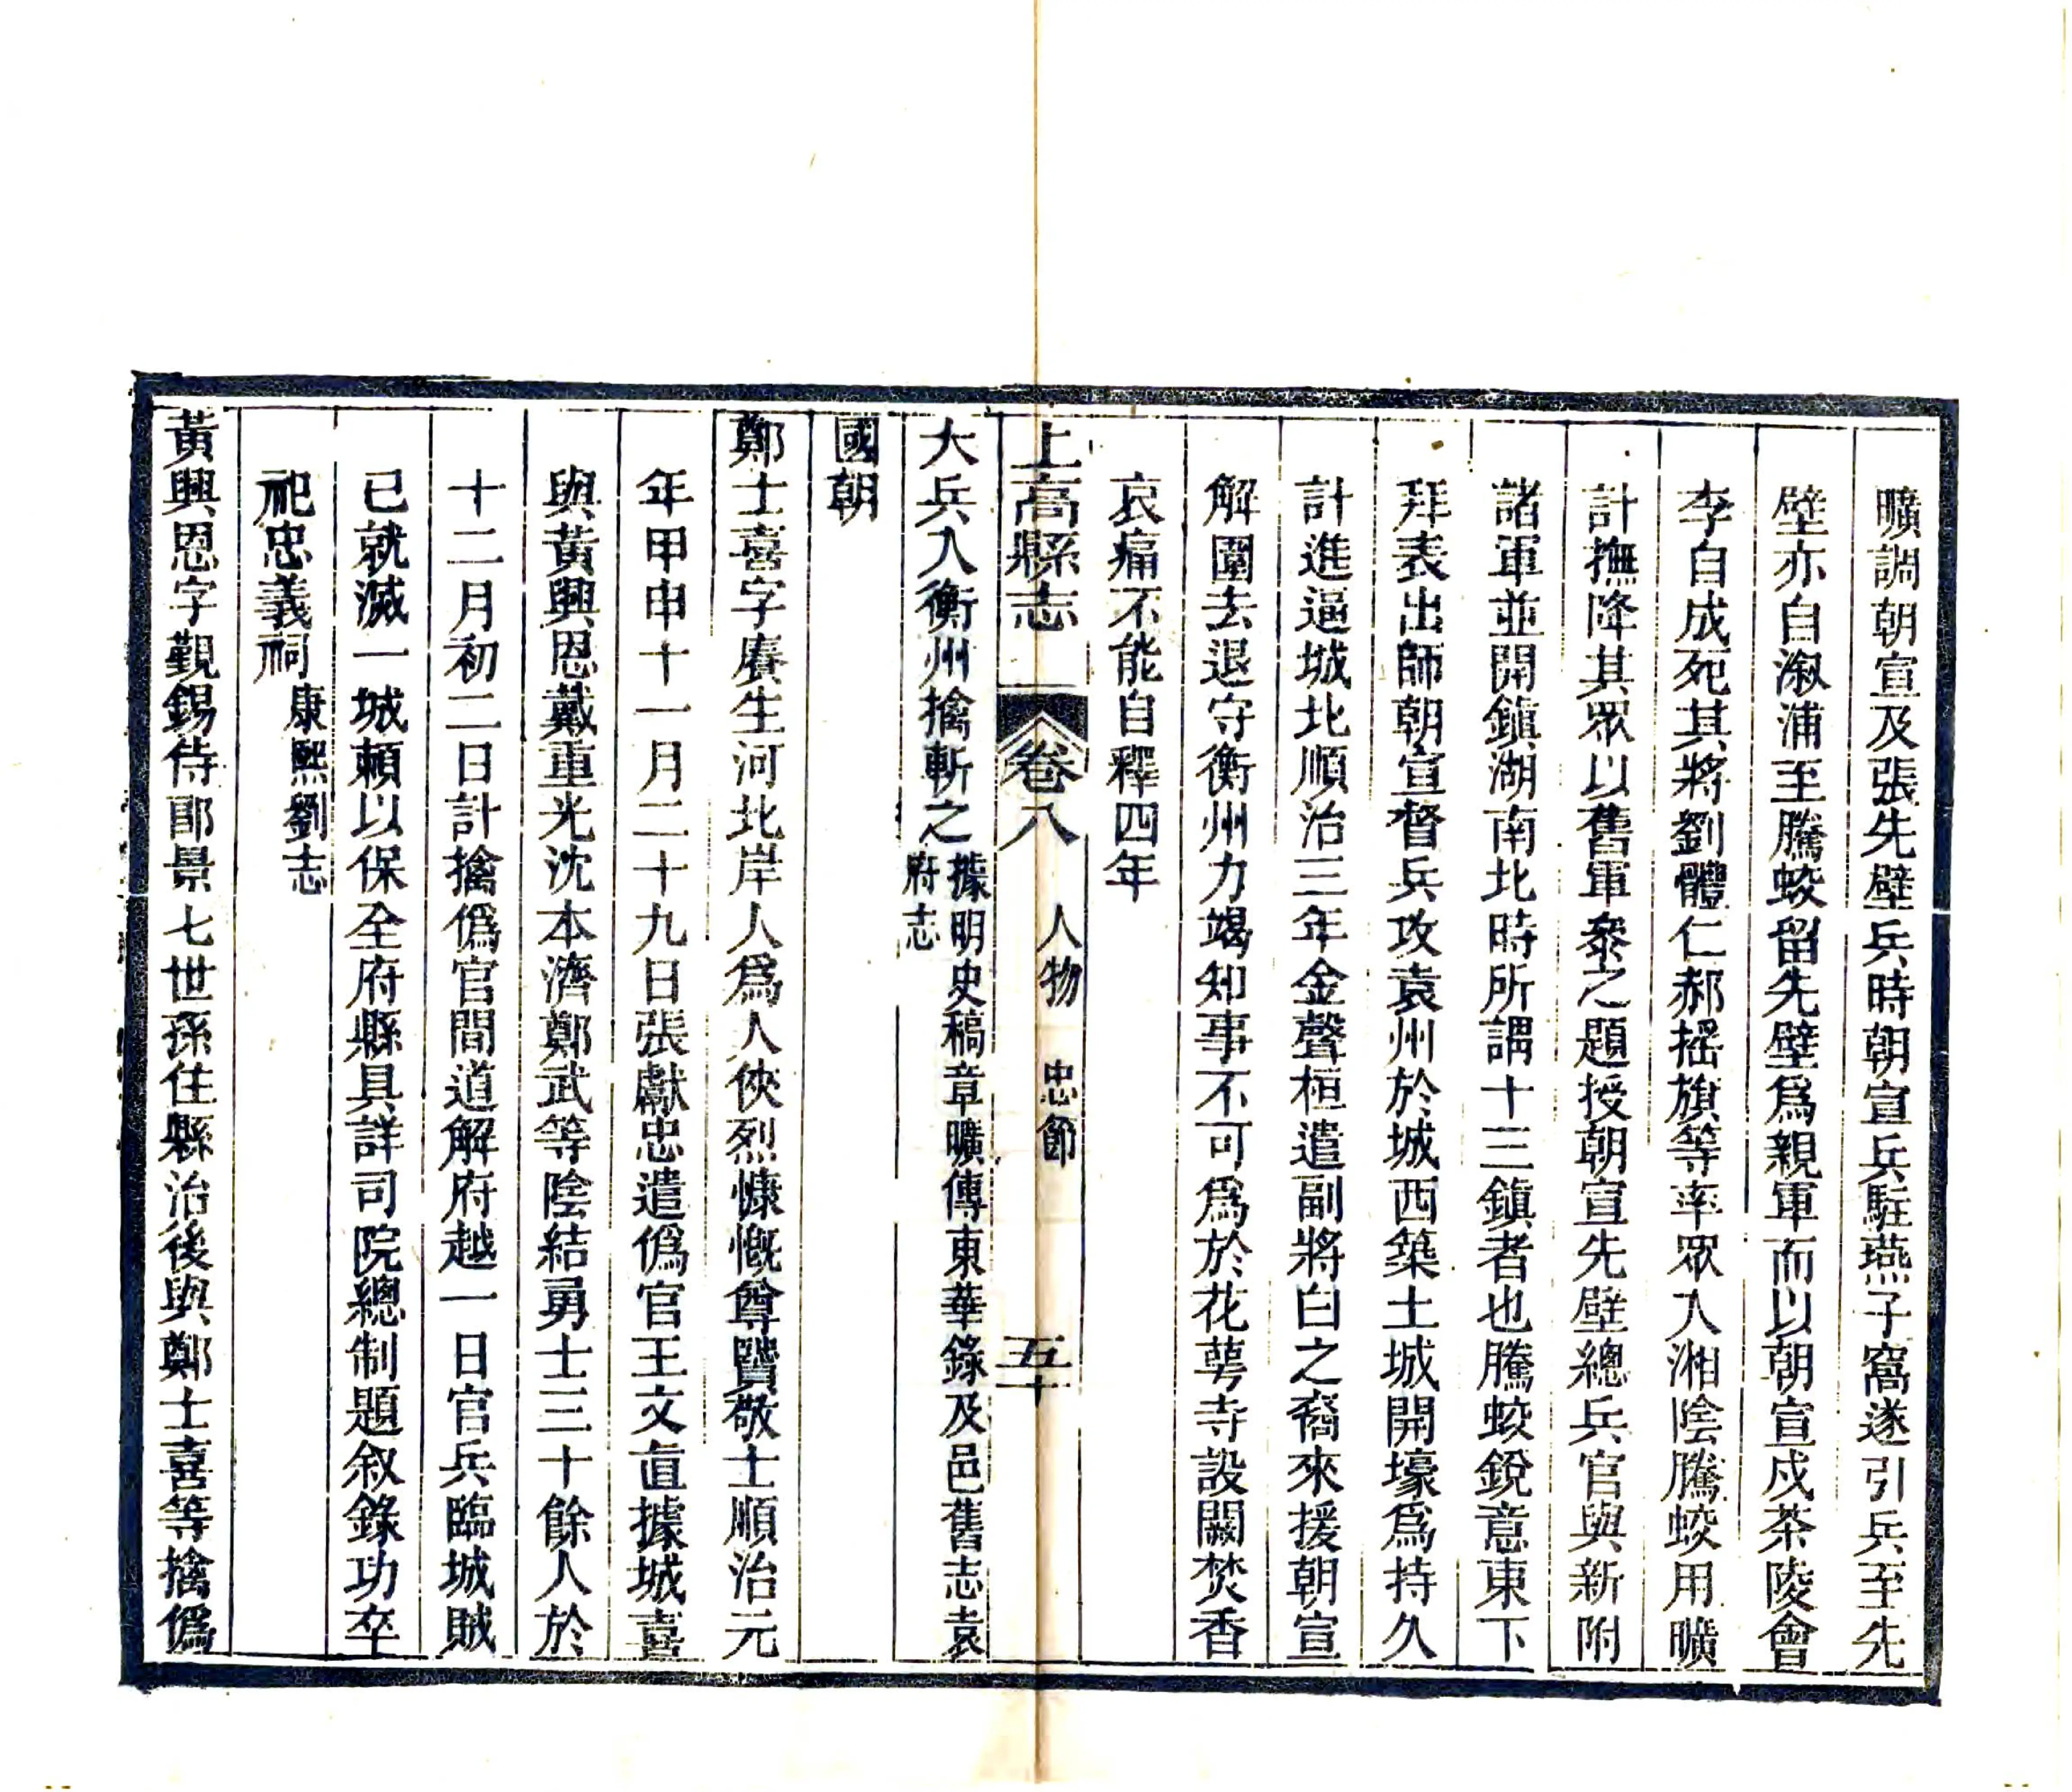 曠調朝宣及張先壁兵時朝宣兵駐燕子窩遂引兵至先
壁亦自溆浦至騰蛟留先壁爲親軍而以朝宣戍茶陵會
李自成死其將劉體仁郝搖旗等率眾入湘陰騰蛟用曠
計撫降其眾以舊軍叅之題授朝宣先壁總兵官與新附
諸軍並開鎮湖南北時所謂十三鎮者也騰蛟銳意東下
拜表出師朝宣督兵攻袁州於城西築土城開壕爲持久
計進逼城北順治三年金聲桓遣副將白之裔來援朝宣
解圍去退守衡州力竭知事不可爲於花萼寺設關焚香
哀痛不能自釋四年
上高縣志 卷八 人物 忠節 五十
大兵入衡州擒斬之據明史稿章曠傳東華錄及邑舊志袁
府志
國朝
鄭士喜字賡生河北岸人爲人俠烈慷慨尊賢敬士順治元
年甲申十一月二十九日張獻忠遣僞官王文直據城喜
與黃興恩戴重光沈本濟鄭武等陰結勇士三十餘人於
十二月初二日計擒僞官間道解府越一日官兵臨城賊
已就滅一城賴以保全府縣具詳司院總制題叙錄功卒
祀忠義祠康熙劉志
黃興恩字覲錫侍郎景七世孫住縣治後與鄭士喜等擒僞